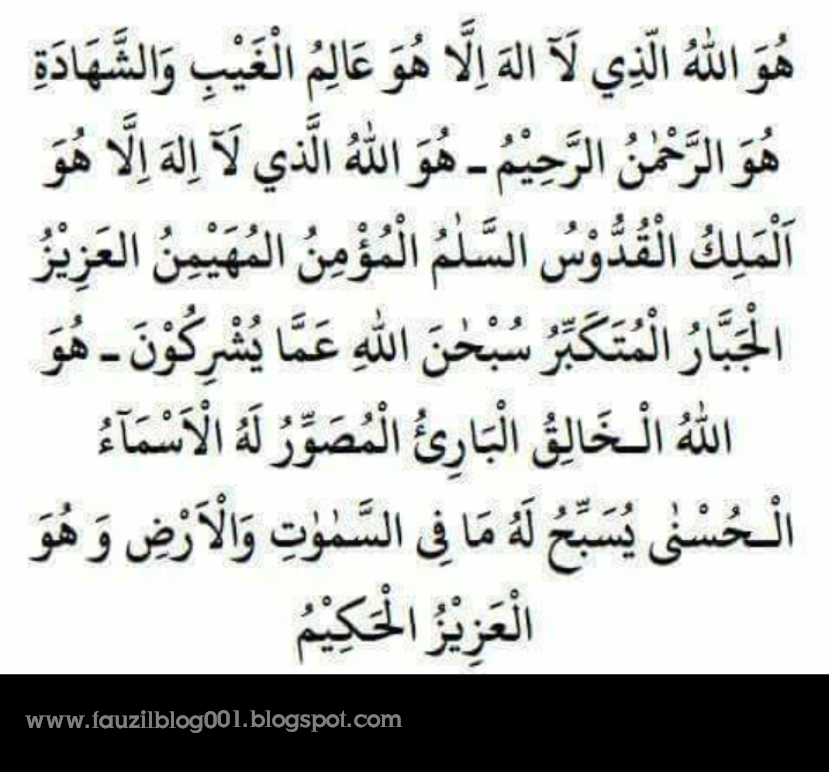 هُوَ اللّٰهُ الَّذِي لَآ الهَ اِلَّا هُوَ عَالِمُ الْغَيْبِ وَالشَّهَادَةِ
هُوَ الرَّحْمٰنُ الرَّحِيْمُ ـ هُوَ اللّٰهُ الَّذي لَآ اِلهَ اِلَّا هُوَ
اَلْمَلِكُ الْقُدُّوْسُ السَّلٰمُ الْمُؤْمِنُ المُهَيْمِنُ العَزِيْزُ
الْجَبَّارُ الْمُتَكَبِّرُ سُبْحٰنَ اللّٰهِ عَمَّا يُشْرِكُوْنَ ـ هُوَ
اللّٰهُ الْـخَالِقُ الْبَارِئُ الْمُصَوِّرُ لَهُ الْاَسْمَآءُ
الْـحُسْنٰى يُسَبِّحُ لَهُ مَا فِى السَّمٰوٰتِ وَالْاَرْضِ وَ هُوَ
الْعَزِيْزُ الْحَكِيْمُ
www.fauzilblog001.blogspot.com